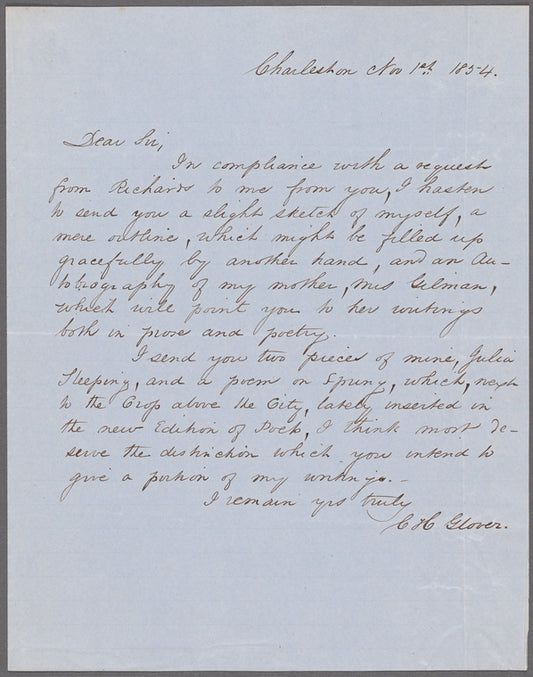 Charleston Nov 1st 1854.
Dear Sir,
In compliance with a request
from Richards to me from you, I hasten
to send you a slight sketch of myself, a
mere outline, which might be filled up
gracefully by another hand, and an Au-
tobiography of my mother, Mrs Gilman,
which will point you to her writings
both in prose and poetry.
I send you two pieces of mine, Julia
Sleeping, and a poem on Spring, which, next
to the Cross above the City, lately inserted in
the new Edition of Poets, I think most de-
serve the distinction which you intend to
give a portion of my writings.-
I remain yrs truly
C H Glover.